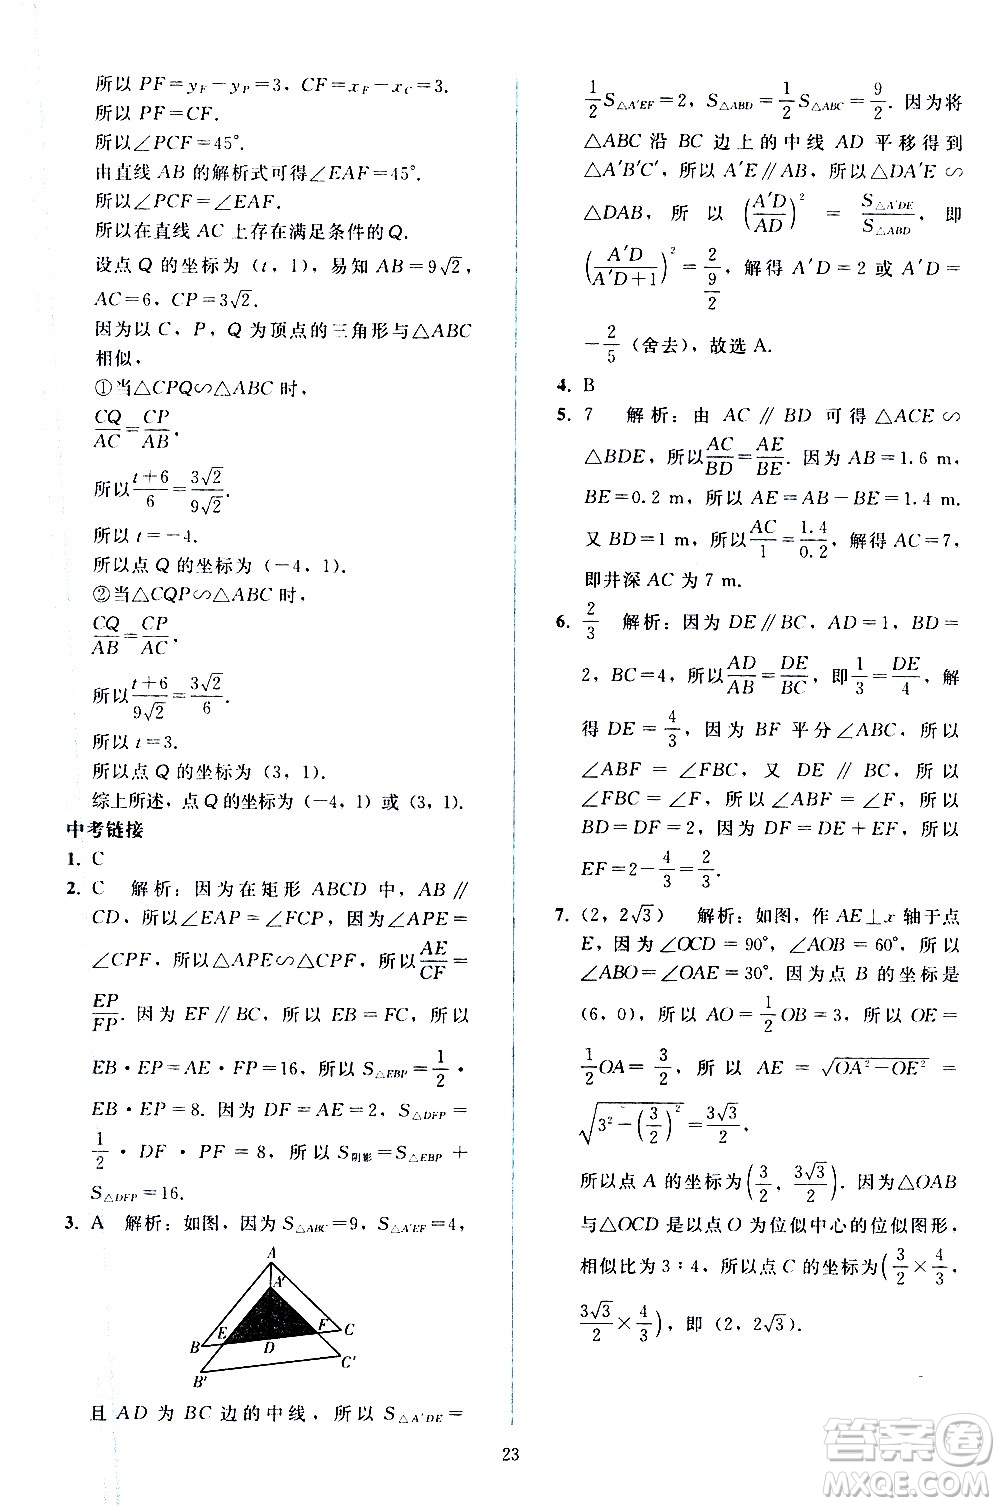 所以 PF=y_F-y_P=3，CF=x_F-x_C=3.
所以 PF=CF.
所以∠PCF=45°.
由直线 AB 的解析式可得∠EAF=45°.
所以∠PCF=∠EAF.
所以在直线 AC 上存在满足条件的 Q.
设点 Q 的坐标为（t，1），易知 AB=9√2，
AC=6，CP=3√2.
因为以 C，P，Q 为顶点的三角形与△ABC
相似，
①当△CPQ∽△ABC 时，
CQ/AC=CP/AB.
所以(t+6)/6=3√2/(9√2).
所以 t=-4.
所以点 Q 的坐标为（-4，1）.
②当△CQP∽△ABC 时，
CQ/AB=CP/AC.
所以(t+6)/(9√2)=3√2/6.
所以 t=3.
所以点 Q 的坐标为（3，1）.
综上所述，点 Q 的坐标为（-4，1）或（3，1）.
中考链接
1. C
2. C 解析：因为在矩形 ABCD 中，AB∥
CD，所以∠EAP=∠FCP，因为∠APE=
∠CPF，所以△APE∽△CPF，所以AE/CF=
EP/FP. 因为 EF∥BC，所以 EB=FC，所以
EB·EP=AE·FP=16，所以 S△EBP=1/2·
EB·EP=8. 因为 DF=AE=2，S△DFP=
1/2·DF·PF=8，所以 S阴影=S△EBP+
S△DFP=16.
3. A 解析：如图，因为 S△ABC=9，S△A′EF=4，
A
A′
E
F
B
D
C
C′
B′
且 AD 为 BC 边的中线，所以 S△A′DE=
1/2S△A′EF=2，S△ABD=1/2S△ABC=9/2. 因为将
△ABC 沿 BC 边上的中线 AD 平移得到
△A′B′C′，所以 A′E∥AB，所以△DA′E∽
△DAB，所以(A′D/AD)²=S△A′DE/S△ABD，即
(A′D/(A′D+1))²=2/(9/2)，解得 A′D=2 或 A′D=
-2/5（舍去），故选 A.
4. B
5. 7 解析：由 AC∥BD 可得△ACE∽
△BDE，所以AC/BD=AE/BE. 因为 AB=1.6 m，
BE=0.2 m，所以 AE=AB-BE=1.4 m.
又 BD=1 m，所以AC/1=1.4/0.2，解得 AC=7，
即井深 AC 为 7 m.
6. 2/3 解析：因为 DE∥BC，AD=1，BD=
2，BC=4，所以AD/AB=DE/BC，即1/3=DE/4，解
得 DE=4/3，因为 BF 平分∠ABC，所以
∠ABF=∠FBC，又 DE∥BC，所以
∠FBC=∠DFB，所以∠ABF=∠DFB，所以
BD=DF=2，因为 DF=DE+EF，所以
EF=2-4/3=2/3.
7.（2，2√3） 解析：如图，作 AE⊥x 轴于点
E，因为∠OCD=90°，∠AOB=60°，所以
∠ABO=∠OAE=30°. 因为点 B 的坐标是
（6，0），所以 AO=1/2OB=3，所以 OE=
1/2OA=3/2，所以 AE=√(OA²-OE²)=
√(3²-(3/2)²)=3√3/2.
所以点 A 的坐标为(3/2，3√3/2). 因为△OAB
与△OCD 是以点 O 为位似中心的位似图形，
相似比为 3：4，所以点 C 的坐标为(3/2×4/3，
3√3/2×4/3)，即（2，2√3）.
23
答案圈
MXQE.COM